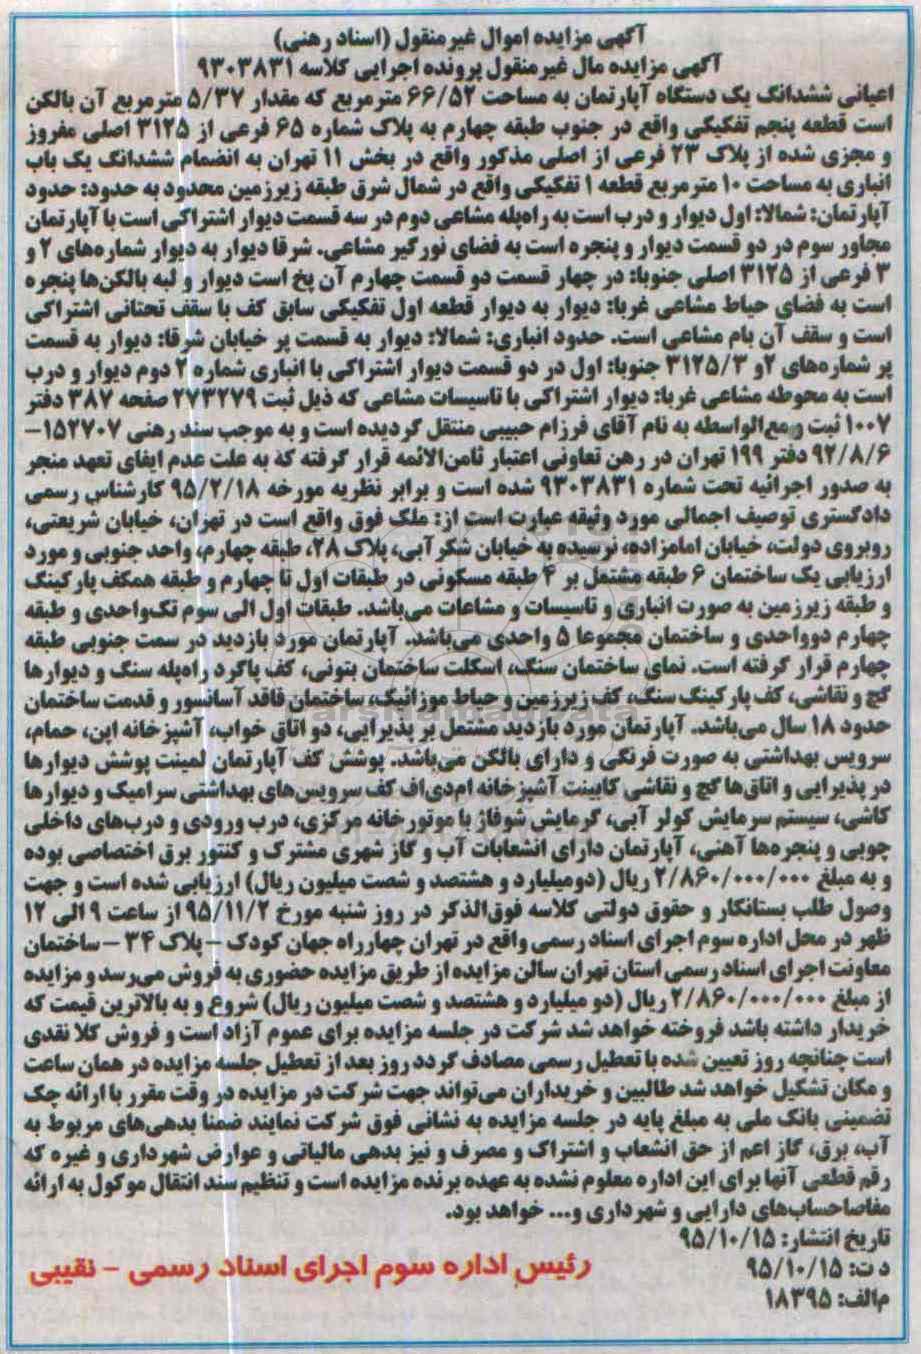 آگهی مزایده اموال غیرمنقول (اسناد رهنی)
آگهی مزایده مال غیرمنقول پرونده اجرایی کلاسه ۹۳۰۳۸۳۱
اعیانی ششدانگ یک دستگاه آپارتمان به مساحت ۶۶/۵۲ مترمربع که مقدار ۵/۳۷ مترمربع آن بالکن
است قطعه پنجم تفکیکی واقع در جنوب طبقه چهارم به پلاک شماره ۶۵ فرعی از ۳۱۲۵ اصلی مفروز
و مجزی شده از پلاک ۲۳ فرعی از اصلی مذکور واقع در بخش ۱۱ تهران به انضمام ششدانگ یک باب
انباری به مساحت ۱۰ مترمربع قطعه ۱ تفکیکی واقع در شمال شرق طبقه زیرزمین محدود به حدود: حدود
آپارتمان: شمالا: اول دیوار و درب است به راه‌پله مشاعی دوم در سه قسمت دیوار اشتراکی است با آپارتمان
مجاور سوم در دو قسمت دیوار و پنجره است به فضای نورگیر مشاعی. شرقا دیوار به دیوار شماره‌های ۲ و
۳ فرعی از ۳۱۲۵ اصلی جنوبا: در چهار قسمت دو قسمت چهارم آن پخ است دیوار و لبه بالکن‌ها پنجره
است به فضای حیاط مشاعی غربا: دیوار به دیوار قطعه اول تفکیکی سابق کف با سقف تحتانی اشتراکی
است و سقف آن بام مشاعی است. حدود انباری: شمالا: دیوار به قسمت پر خیابان شرقا: دیوار به قسمت
پر شماره‌های ۲و ۳۱۲۵/۳ جنوبا: اول در دو قسمت دیوار اشتراکی با انباری شماره ۲ دوم دیوار و درب
است به محوطه مشاعی غربا: دیوار اشتراکی با تاسیسات مشاعی که ذیل ثبت ۲۷۳۲۷۹ صفحه ۳۸۷ دفتر
۱۰۰۷ ثبت و مع‌الواسطه به نام آقای فرزام حبیبی منتقل گردیده است و به موجب سند رهنی ۱۵۲۷۰۷–
۹۲/۸/۶ دفتر ۱۹۹ تهران در رهن تعاونی اعتبار ثامن‌الائمه قرار گرفته که به علت عدم ایفای تعهد منجر
به صدور اجرائیه تحت شماره ۹۳۰۳۸۳۱ شده است و برابر نظریه مورخه ۹۵/۲/۱۸ کارشناس رسمی
دادگستری توصیف اجمالی مورد وثیقه عبارت است از: ملک فوق واقع است در تهران، خیابان شریعتی،
روبروی دولت، خیابان امامزاده، نرسیده به خیابان شکرآبی، پلاک ۲۸، طبقه چهارم، واحد جنوبی و مورد
ارزیابی یک ساختمان ۶ طبقه مشتمل بر ۴ طبقه مسکونی در طبقات اول تا چهارم و طبقه همکف پارکینگ
و طبقه زیرزمین به صورت انباری و تاسیسات و مشاعات می‌باشد. طبقات اول الی سوم تک‌واحدی و طبقه
چهارم دوواحدی و ساختمان مجموعا ۵ واحدی می‌باشد. آپارتمان مورد بازدید در سمت جنوبی طبقه
چهارم قرار گرفته است. نمای ساختمان سنگ، اسکلت ساختمان بتونی، کف پاگرد راه‌پله سنگ و دیوارها
گچ و نقاشی، کف پارکینگ سنگ، کف زیرزمین و حیاط موزائیک، ساختمان فاقد آسانسور و قدمت ساختمان
حدود ۱۸ سال می‌باشد. آپارتمان مورد بازدید مشتمل بر پذیرایی، دو اتاق خواب، آشپزخانه اپن، حمام،
سرویس بهداشتی به صورت فرنگی و دارای بالکن می‌باشد. پوشش کف آپارتمان لمینت پوشش دیوارها
در پذیرایی و اتاق‌ها گچ و نقاشی کابینت آشپزخانه ام‌دی‌اف کف سرویس‌های بهداشتی سرامیک و دیوارها
کاشی، سیستم سرمایش کولر آبی، گرمایش شوفاژ با موتورخانه مرکزی، درب ورودی و درب‌های داخلی
چوبی و پنجره‌ها آهنی، آپارتمان دارای انشعابات آب و گاز شهری مشترک و کنتور برق اختصاصی بوده
و به مبلغ ۲/۸۶۰/۰۰۰/۰۰۰ ریال (دومیلیارد و هشتصد و شصت میلیون ریال) ارزیابی شده است و جهت
وصول طلب بستانکار و حقوق دولتی کلاسه فوق‌الذکر در روز شنبه مورخ ۹۵/۱۱/۲ از ساعت ۹ الی ۱۲
ظهر در محل اداره سوم اجرای اسناد رسمی واقع در تهران چهارراه جهان کودک – پلاک ۳۴ – ساختمان
معاونت اجرای اسناد رسمی استان تهران سالن مزایده از طریق مزایده حضوری به فروش می‌رسد و مزایده
از مبلغ ۲/۸۶۰/۰۰۰/۰۰۰ ریال (دو میلیارد و هشتصد و شصت میلیون ریال) شروع و به بالاترین قیمت که
خریدار داشته باشد فروخته خواهد شد شرکت در جلسه مزایده برای عموم آزاد است و فروش کلا نقدی
است چنانچه روز تعیین شده با تعطیل رسمی مصادف گردد روز بعد از تعطیل جلسه مزایده در همان ساعت
و مکان تشکیل خواهد شد طالبین و خریداران می‌تواند جهت شرکت در مزایده در وقت مقرر با ارائه چک
تضمینی بانک ملی به مبلغ پایه در جلسه مزایده به نشانی فوق شرکت نمایند ضمنا بدهی‌های مربوط به
آب، برق، گاز اعم از حق انشعاب و اشتراک و مصرف و نیز بدهی مالیاتی و عوارض شهرداری و غیره که
رقم قطعی آنها برای این اداره معلوم نشده به عهده برنده مزایده است و تنظیم سند انتقال موکول به ارائه
مفاصاحساب‌های دارایی و شهرداری و... خواهد بود.
تاریخ انتشار: ۹۵/۱۰/۱۵
د ت: ۹۵/۱۰/۱۵
رئیس اداره سوم اجرای اسناد رسمی – نقیبی
م‌الف: ۱۸۳۹۵